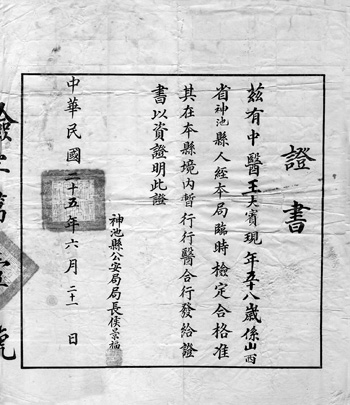 證書
茲有中醫王大賓現年五十八歲係山西
省神池縣人經本局臨時檢定合格准
其在本縣境內暫行行醫合行發給證
書以資證明此證
神池縣公安局局長侯景福
中華民國二十五年六月二十一日